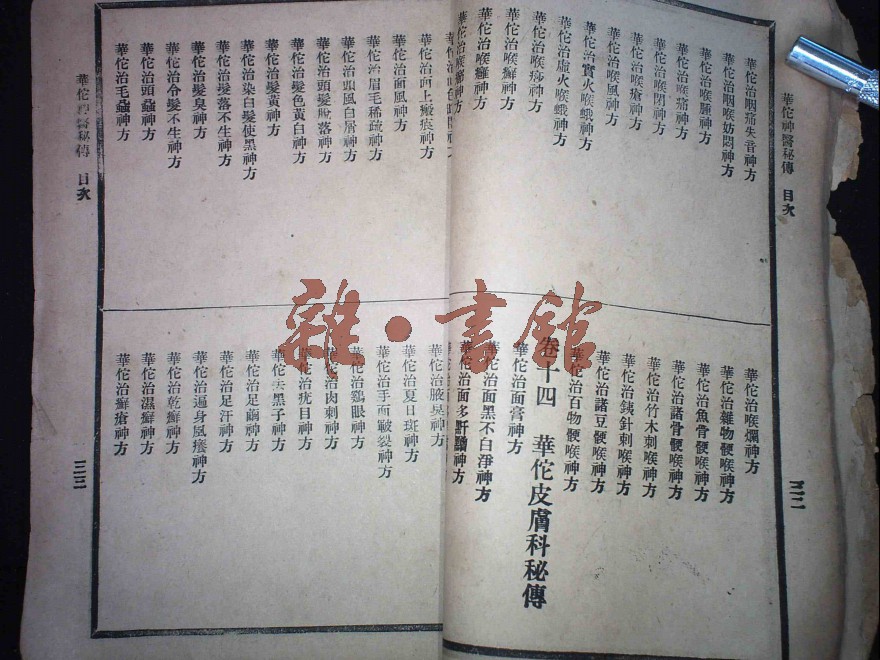 華佗神醫秘傳 目次 三二
華佗治咽痛失音神方
華佗治咽喉妨悶神方
華佗治喉腫神方
華佗治喉痛神方
華佗治喉閉神方
華佗治喉瘡神方
華佗治喉風神方
華佗治實火喉蛾神方
華佗治虛火喉蛾神方
華佗治喉痧神方
華佗治喉癬神方
華佗治喉癰神方
華佗治喉瘤神方
華佗治喉爛神方
華佗治雜物骾喉神方
華佗治魚骨骾喉神方
華佗治諸骨骾喉神方
華佗治竹木刺喉神方
華佗治銕針刺喉神方
華佗治諸豆骾喉神方
華佗治百物骾喉神方
卷十四 華佗皮膚科秘傳
華佗治面膏神方
華佗治面黑不白淨神方
華佗治面多神方
華佗治面上瘢痕神方
華佗治面風神方
華佗治眉毛稀疏神方
華佗治頭風白屑神方
華佗治頭髮脫落神方
華佗治髮色黃白神方
華佗治髮黃神方
華佗治染白髮使黑神方
華佗治髮落不生神方
華佗治髮臭神方
華佗治令髮不生神方
華佗治頭蝨神方
華佗治毛蝨神方
華佗治腋臭神方
華佗治夏日斑神方
華佗治手面皸裂神方
華佗治鷄眼神方
華佗治肉刺神方
華佗治疣目神方
華佗去黑子神方
華佗治足繭神方
華佗治足汗神方
華佗治遍身風癢神方
華佗治乾癬神方
華佗治濕癬神方
華佗治癬瘡神方
華佗神醫秘傳 目次 三三
雜·書館